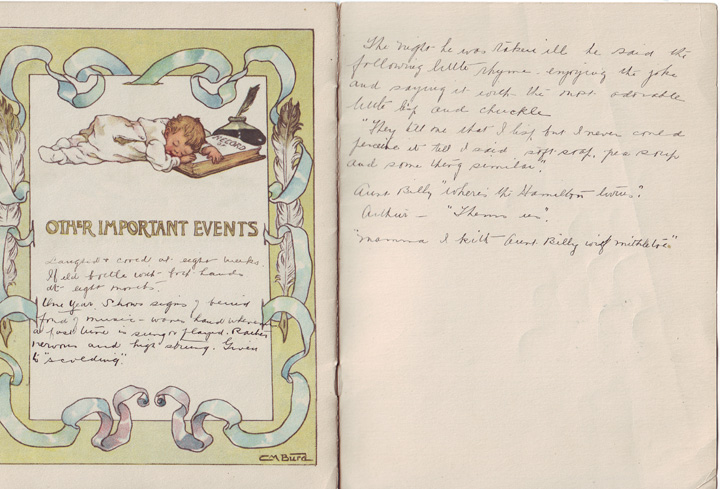 RECORD
OTHER IMPORTANT EVENTS
Laughed & cooed at eight weeks.
Held bottle with both hands
at eight months.
One Year. Shows signs of being
fond of music - waves hand whenever
a fast tune is sung or played. Rather
nervous and high strung. Given
to "scolding".
CM Burd
The night he was taken ill he said the
following little rhyme. enjoying the joke
and saying it with the most adorable
little lisp and chuckle
"They tell me that I lisp but I never could
perceive it till I said soft soap, pea soup
and some thing similar".
Aunt Billy "where's the Hamilton twins".
Arthur - "Thems us".
"Mamma I kith Aunt Billy wif mithletoe"